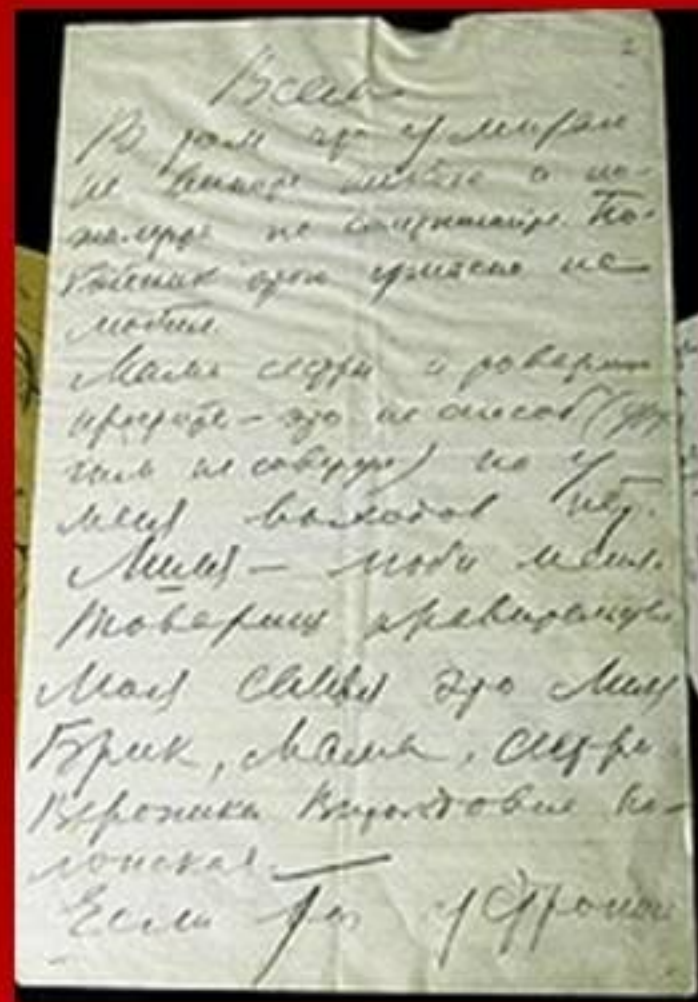 Всем
В том что умираю
не вините никого и по-
жалуйста не сплетничайте. По-
койник этого ужасно не
любил.
Мама сестры и товарищи
простите – это не способ (дру
гим не советую) но у
меня выходов нет.
Лиля – люби меня.
Товарищ правительство
Моя семья это Лиля
Брик, мама, сестры
Вероника Витольдовна По-
лонская. —
Если ты устроишь